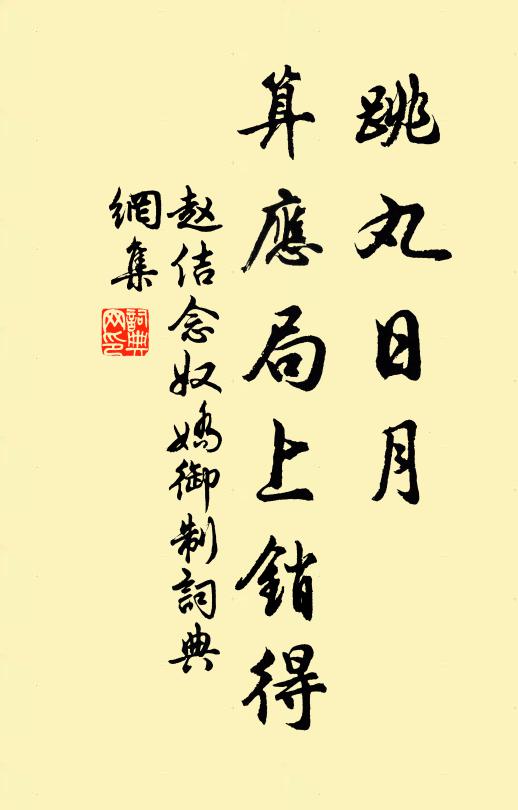 跳丸日月
算應局上銷得
赵佶念奴嬌御制詞典
網集
詞典
网印